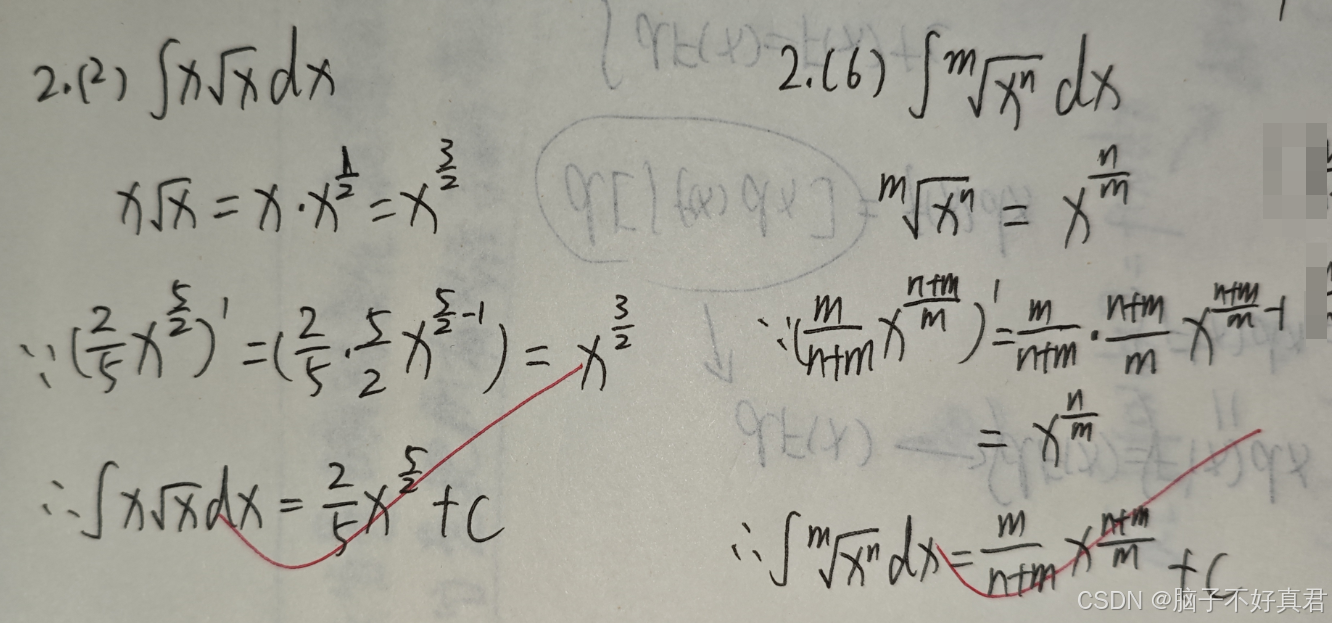 2.(2) ∫x√x dx
x√x = x·x^{1/2} = x^{3/2}
∵ (2/5 x^{5/2})' = (2/5 · 5/2 x^{5/2 -1}) = x^{3/2}
∴ ∫x√x dx = 2/5 x^{5/2} + C
2.(6) ∫ᵐ√(xⁿ) dx
ᵐ√(xⁿ) = x^{n/m}
∵ (m/(n+m) x^{(n+m)/m})' = m/(n+m) · (n+m)/m x^{(n+m)/m -1}
= x^{n/m}
∴ ∫ᵐ√(xⁿ) dx = m/(n+m) x^{(n+m)/m} + C
CSDN @脑子不好真君